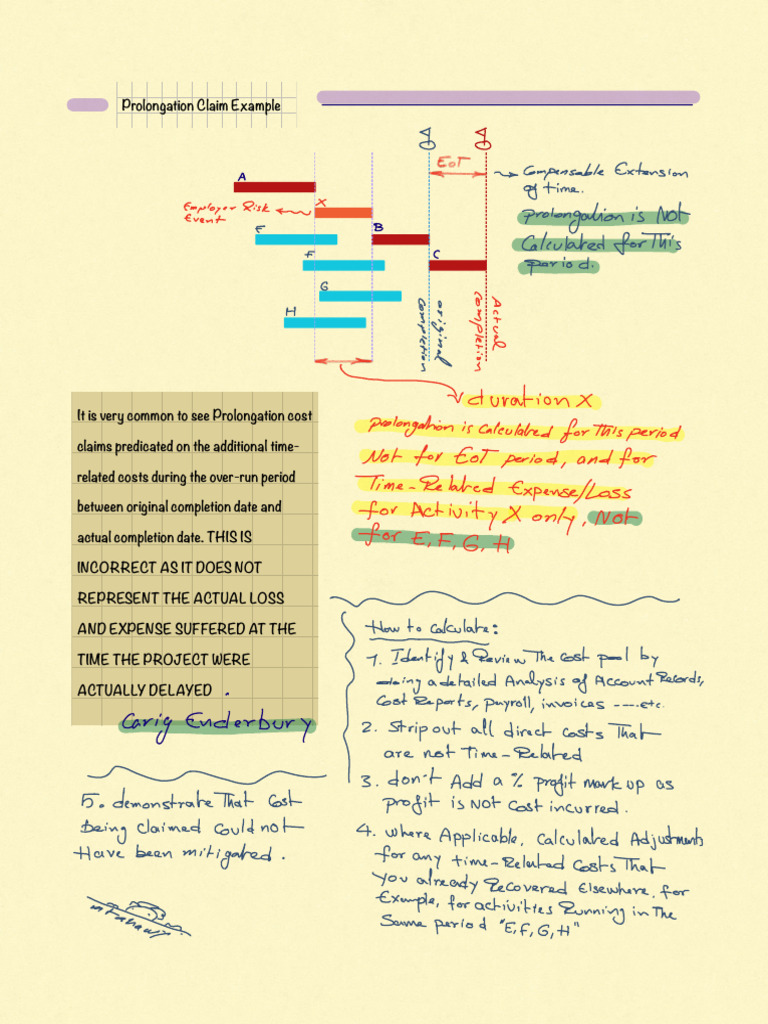 Prolongation Claim Example
EOT
Compensable Extension
of time.
prolongation is Not
Calculated for This
period.
A
X
Employer Risk
Event
B
E
F
C
G
H
original
completion
Actual
completion
duration X
prolongation is calculated for This period
Not for EOT period, and for
Time-Related Expense/Loss
for Activity X only, Not
for E, F, G, H
It is very common to see Prolongation cost
claims predicated on the additional time-
related costs during the over-run period
between original completion date and
actual completion date. THIS IS
INCORRECT AS IT DOES NOT
REPRESENT THE ACTUAL LOSS
AND EXPENSE SUFFERED AT THE
TIME THE PROJECT WERE
ACTUALLY DELAYED .
Carig Enderbury
How to calculate:
1. Identify & Review The cost pool by
doing a detailed Analysis of Account Records,
Cost Reports, payroll, invoices ---- etc.
2. Strip out all direct costs That
are not Time-Related
3. don't Add a % profit mark up as
profit is NOT cost incurred.
4. where Applicable, Calculated Adjustments
for any time-Related Costs That
You already Recovered Elsewhere. for
Example, for activities Running in The
Same period "E, F, G, H"
5. demonstrate That Cost
Being claimed Could not
Have been mitigated.